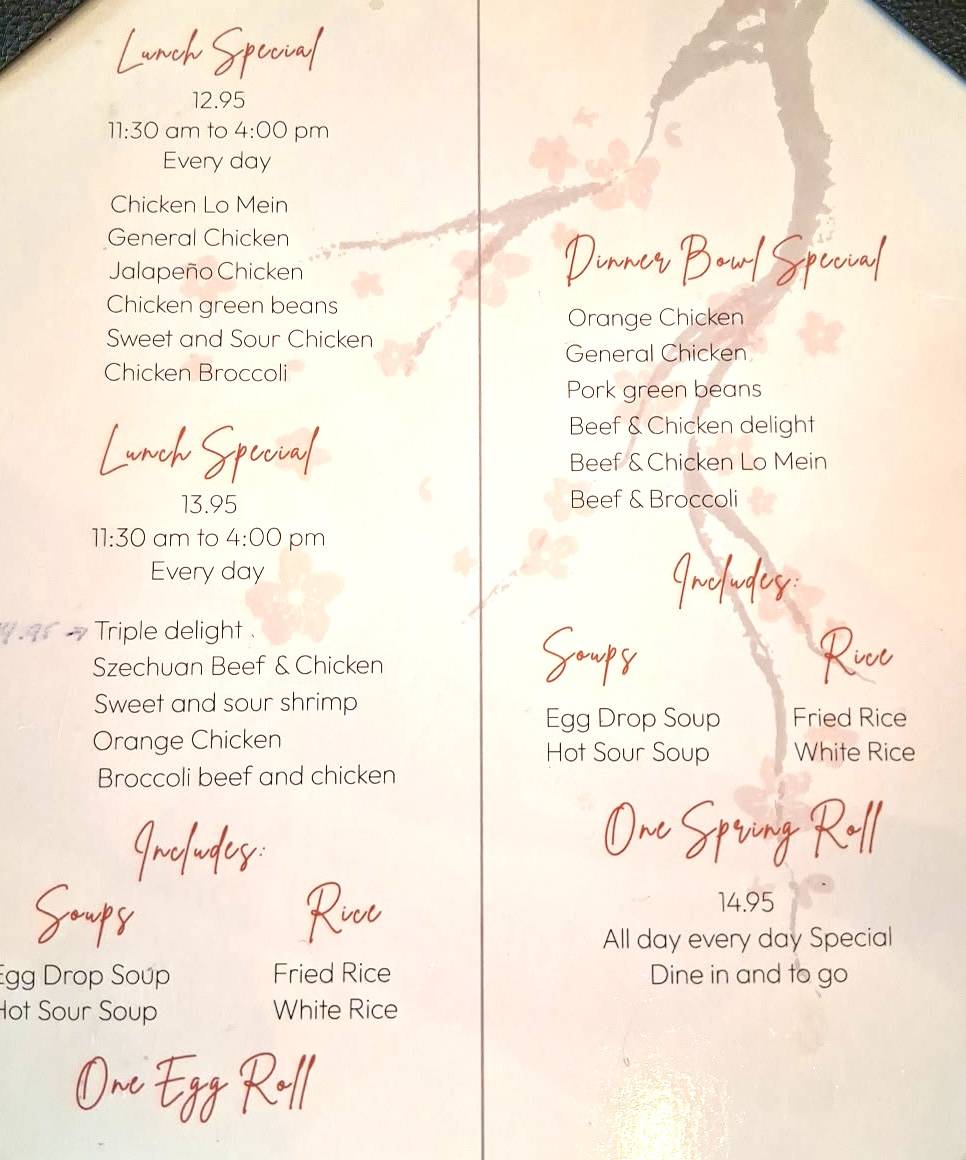 Lunch Special
12.95
11:30 am to 4:00 pm
Every day
Chicken Lo Mein
General Chicken
Jalapeño Chicken
Chicken green beans
Sweet and Sour Chicken
Chicken Broccoli
Lunch Special
13.95
11:30 am to 4:00 pm
Every day
→ Triple delight .
Szechuan Beef & Chicken
Sweet and sour shrimp
Orange Chicken
Broccoli beef and chicken
Includes:
Soups
Rice
Egg Drop Soup
Fried Rice
Hot Sour Soup
White Rice
One Egg Roll
Dinner Bowl Special
Orange Chicken
General Chicken
Pork green beans
Beef & Chicken delight
Beef & Chicken Lo Mein
Beef & Broccoli
Includes:
Soups
Rice
Egg Drop Soup
Fried Rice
Hot Sour Soup
White Rice
One Spring Roll
14.95
All day every day Special
Dine in and to go